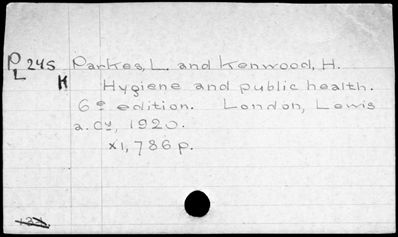 PL 245 Parkes, L. and Kenwood, H.
K Hygiene and public health.
6e edition. London, Lewis
a. Cy, 1920.
XI, 786 p.